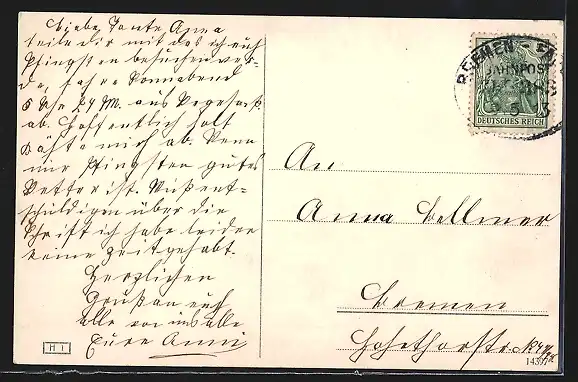 Liebe Tante Anna
teile dir mit das ich euch
Pfingsten besuchen wer-
de, fahre Sonnabend
5 Uhr 24 M. aus Vegesack
ab. Hoffentlich holt
mich ab. Wenn
nur Pfingsten gutes
Wetter ist. Mußt ent-
schuldigen über die
Schrift ich habe leider
keine Zeit gehabt.
Herzlichen
Gruß an euch
alle von uns alle
Eure Anni
BREMEN -
BAHNPOST
DEUTSCHES REICH
An
Anna Bellmer
Bremen
Hohethorstr.
14397